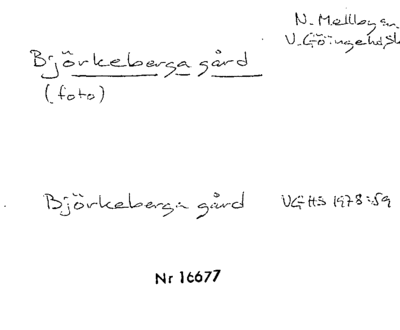 N. Mellby sn
V. Göinge hd, Sk
Björkeberga gård
(foto)
Björkeberga gård VGHS 1978:59
Nr 16677